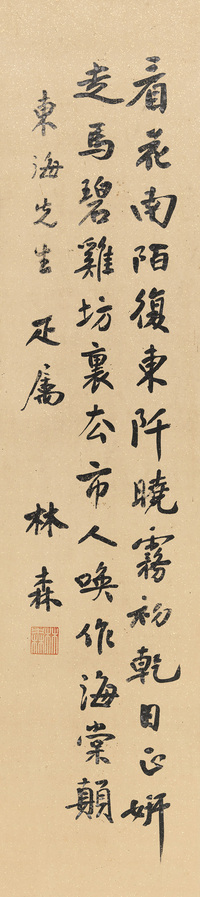 看花南陌復東阡曉霧初乾日正妍
走馬碧雞坊裏去市人喚作海棠顛
東海先生疋屬 林森